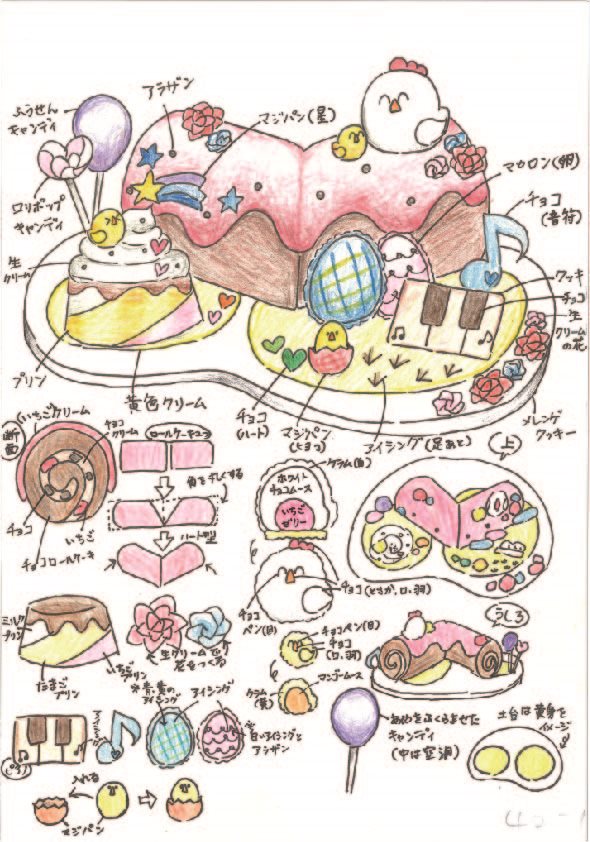 アラザン
ふうせん
キャンディ
マジパン(星)
ロリポップ
キャンディ
マカロン(卵)
チョコ
(音符)
生
クリーム
クッキー
チョコ
生
クリーム
の花
プリン
黄色クリーム
チョコ
(ハート)
マジパン
(ヒヨコ)
アイシング(足あと)
メレンゲ
クッキー
断面
いちごクリーム
チョコ
クリーム
ロールケーキ2つ
角を丸くする
ハート型
チョコ
いちご
チョコロールケーキ
クラム(白)
ホワイト
チョコムース
いちご
ゼリー
上
チョコ(とさか、口、羽)
チョコ
ペン(目)
チョコペン(目)
チョコ
(口、羽)
マンゴームース
クラム
(黄)
うしろ
ミルク
プリン
たまご
プリン
いちご
プリン
生クリームで
花をつくる
アイシング
青・黄の
アイシング
アイシング
白いアイシングと
アラザン
ピアノ
あめをふくらませた
キャンディ
(中は空洞)
土台は黄身を
イメージ
入れる
マジパン